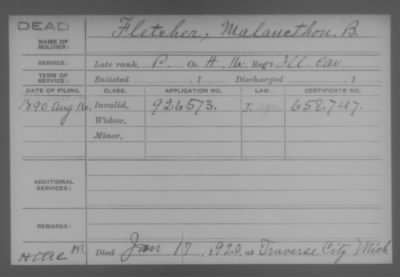 DEAD
Fletcher, Malancthon, B.
NAME OF
SOLDIER:
SERVICE: Late rank, P. Co. H, 16 Reg't Ill. Cav
TERM OF
SERVICE: Enlisted , 1 Discharged , 1
DATE OF FILING. CLASS. APPLICATION NO. LAW. CERTIFICATE NO.
1890 Aug 16. Invalid, 926513. 658.747.
Widow,
Minor,
ADDITIONAL
SERVICES:
REMARKS:
Died Jan 17, 1920, at Traverse City Mich